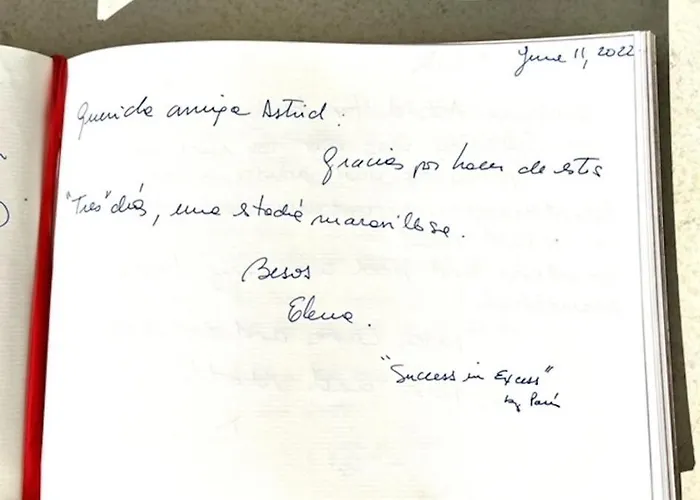 June 11, 2022
Querida amiga Astrid.
Gracias por hacer de estos
"Tres" días, una estadía maravillosa.
Besos
Elena.
"Success in Excess"
by